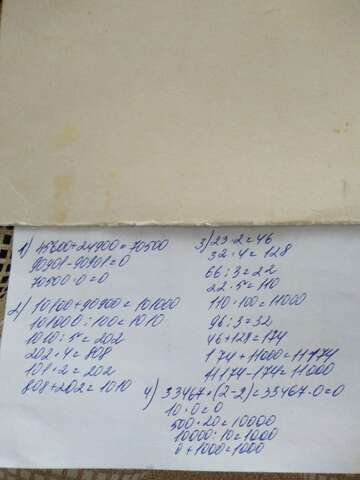 1) 45600+24900=70500
90901-90901=0
70500·0=0
2) 10100+90900=101000
101000:100=1010
1010:5=202
202·4=808
101·2=202
808+202=1010
3) 23·2=46
32·4=128
66:3=22
22·5=110
110·100=11000
96:3=32
46+128=174
174+11000=11174
11174-174=11000
4) 33467·(2-2)=33467·0=0
10·0=0
500·20=10000
10000:10=1000
0+1000=1000